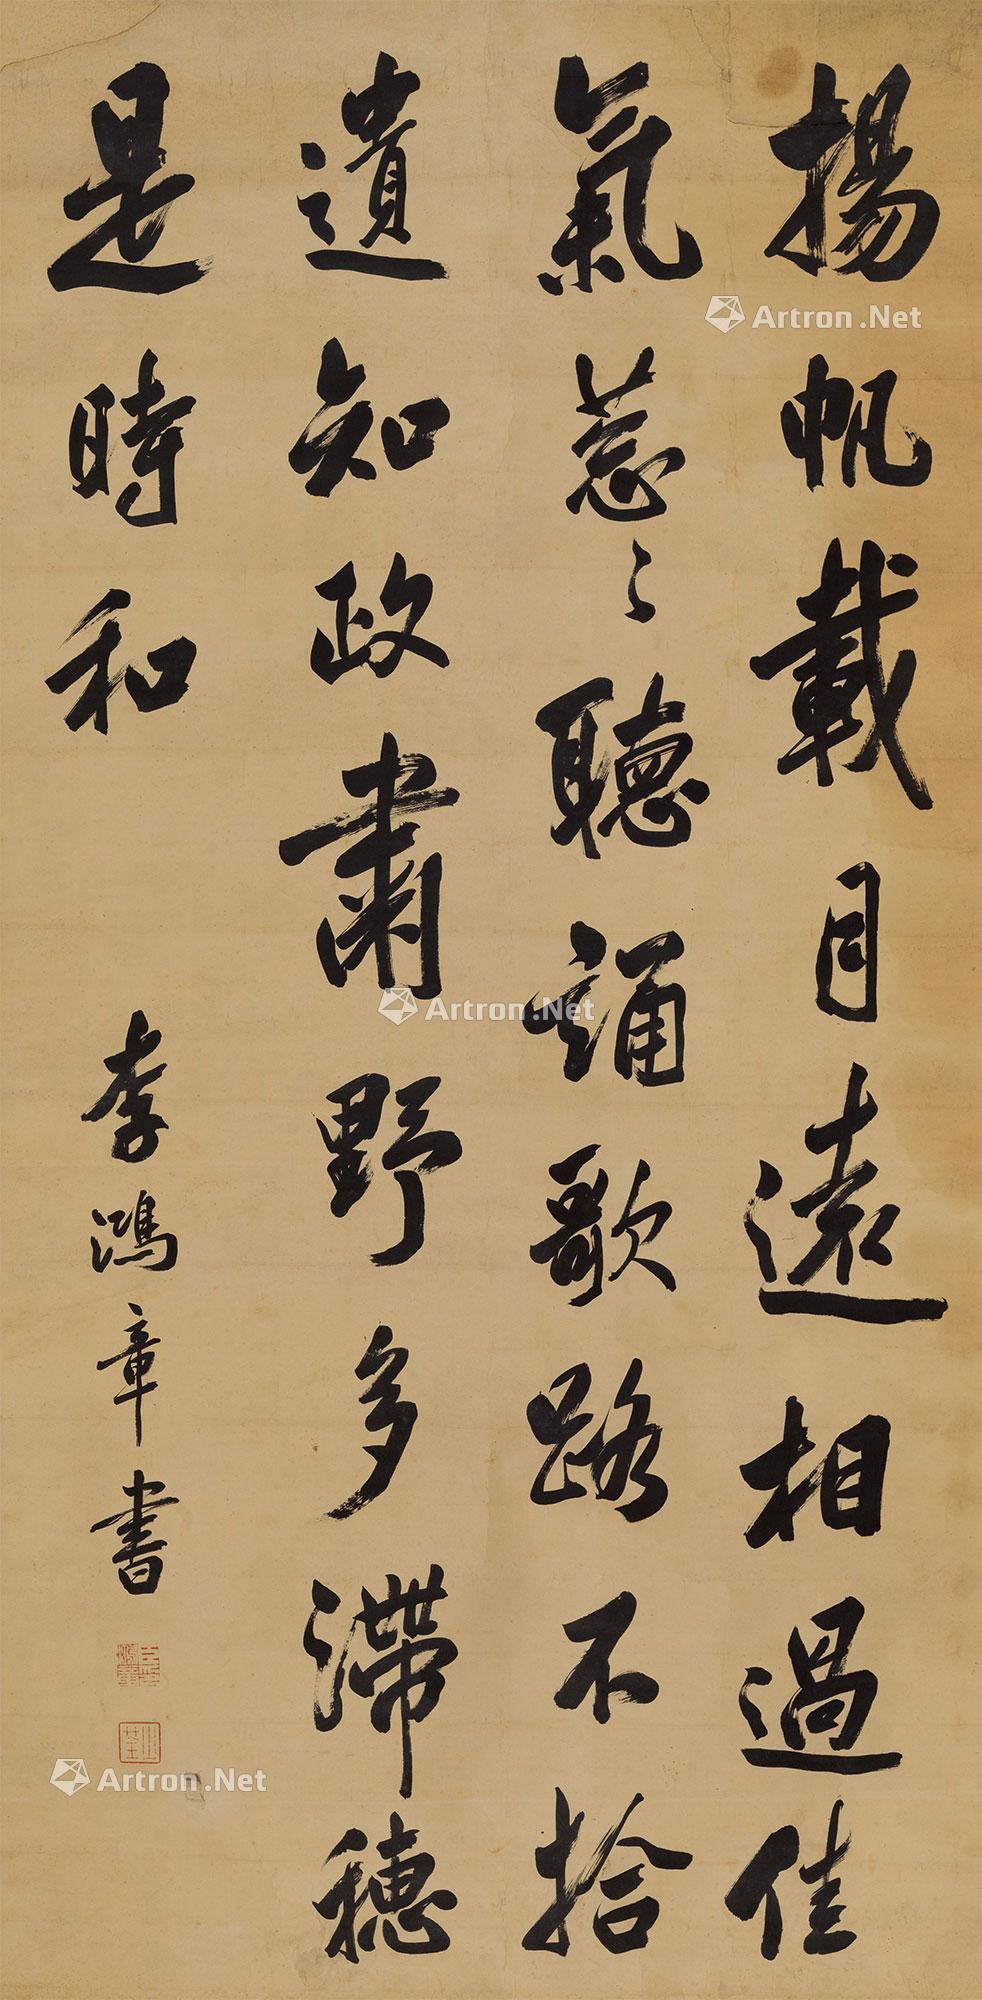 揚帆載月遠相過佳
氣葱〻聽誦歌路不拾
遺知政肅野多滯穗
是時和
李鴻章書
少荃
Artron.Net
Artron.Net
Artron.Net